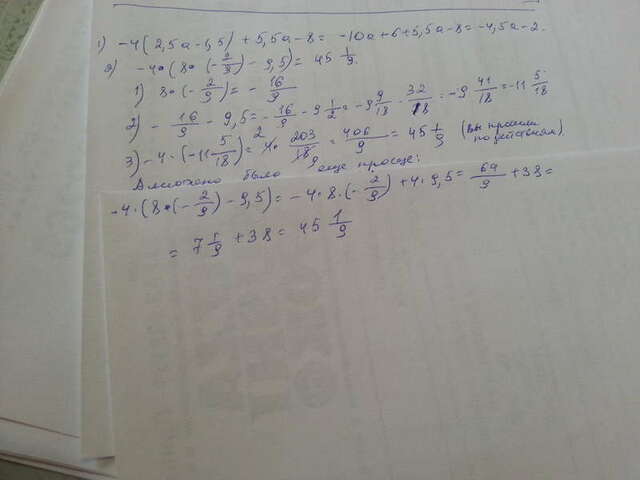 1) -4(2,5a-1,5)+5,5a-8= -10a+6+5,5a-8=-4,5a-2.
2) -4·(8·(-2/9)-9,5)=45 1/9.
1) 8·(-2/9)=-16/9
2) -16/9-9,5=-16/9-9 1/2=-9 9/18-32/18=-9 41/18=-11 5/18
3) -4·(-11 5/18)=4·203/18=406/9=45 1/9 (вы просили по действиям)
А можно было еще проще:
-4·(8·(-2/9)-9,5)=-4·8·(-2/9)+4·9,5=64/9+38=
=7 1/9+38=45 1/9